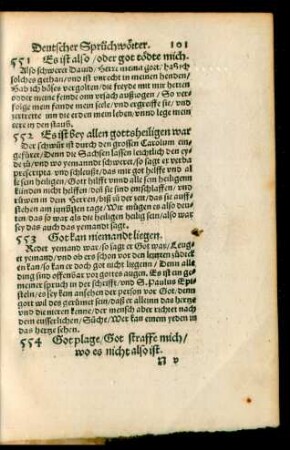 Deutscher Sprüchwörter. 101
551 Es ist also / oder got tödte mich.
Also schweret Dauid / Herre mein got / hab ich
solches gethan / vnd ist vnrecht in meinen henden /
Hab ich böses vergolten / die freyde mit mir hetten
oder meine feinde on vrsach So ver
folge mein feinde mein seele / vnd ergreiffe sie / vnd
vertrette inn die erden mein leben / vnnd lege mein
ere in den staub.
552 Es ist bey allen gottsheiligen war
Der schwür ist durch den grossen Carolum ein
gefüret / Denn die Sachsen liessen leichtlich den ey
de zů / vnd wo yemanndt schweret / so sagt er verba
prescripta vnd schleust / das mir got helffe vnd al
le sein heiligen / Gott hilfft vnnd alle sein heiligenn
künden nicht helffen / deß sie sind entschlaffen / vnd
růwen in dem Herren / biß zů der zeit / das sie auff
stehen am jungsten tage / Wir mügen es also deu
ten / das so war als die heiligen heilig sein / also war
sey das auch das yemandt sagt.
553 Got kan niemandt liegen.
Redet yemand war / so sagt er Got war / Leug
et yemand / vnd ob ers schon vor den leuten
en kan / so kan er doch got nicht liegenn / Denn alle
ding sind offenbar vor gottes augen. Es ist ein ge
meiner spruch in der schrifft / vnd S. Paulus Epi
steln / es sey kein ansehen der person vor Got / denn
gott vnd das gemüret sein / daß er alleinn das hertze
vnd die nieren kenne / der mensch aber richtet nach
dem eusserlichen / Süche / Wer kan einem yeden in
das hertze sehen.
554 Got plage / Got straffe mich /
wo es nicht also ist.
N v